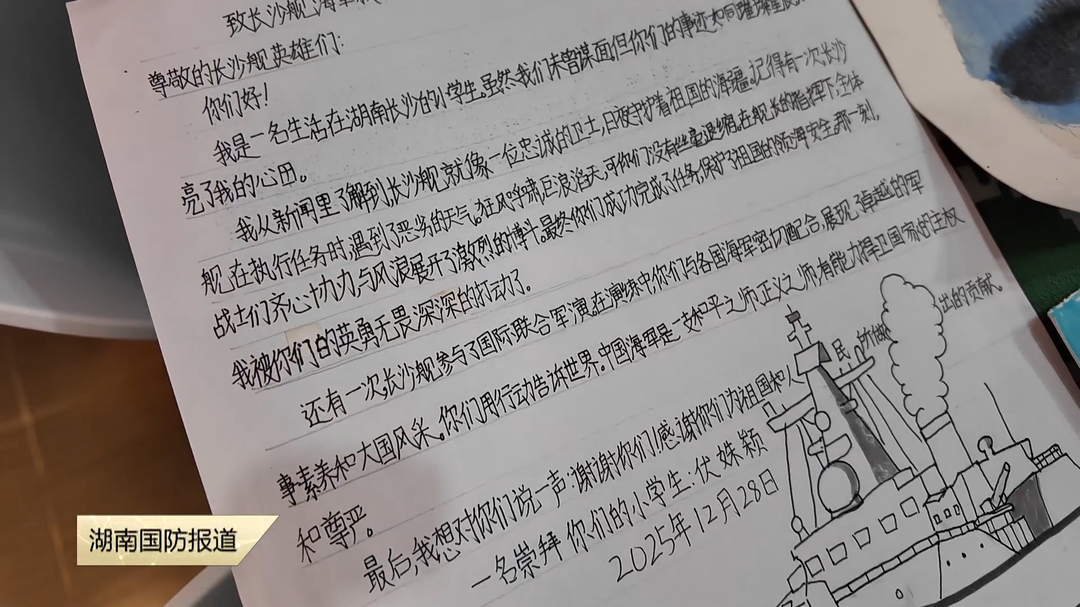 致长沙舰海军
尊敬的长沙舰英雄们:
你们好!
我是一名生活在湖南长沙的小学生。虽然我们未曾谋面,但你们的事迹如同璀璨星辰
亮了我的心田。
我从新闻里了解到,长沙舰就像一位忠诚的卫士,日夜守护着祖国的海疆。记得有一次,长沙
舰在执行任务时,遇到了恶劣的天气,狂风呼啸,巨浪滔天,可你们没有丝毫退缩。在舰长的指挥下,全体
战士们齐心协力,与风浪展开了激烈的搏斗。最终你们成功完成了任务,保护了祖国的领海安全。那一刻,
我被你们的英勇无畏深深的打动了。
还有一次,长沙舰参与了国际联合军演。在演练中,你们与各国海军密切配合,展现了卓越的军
事素养和大国风采。你们用行动告诉世界。中国海军是一支和平之师,正义之师,有能力捍卫国家的主权
和尊严。
最后,我想对你们说一声:谢谢你们!感谢你们为祖国和人民所做出的贡献。
一名崇拜你们的小学生:伏姝颖
2025年12月28日
湖南国防报道